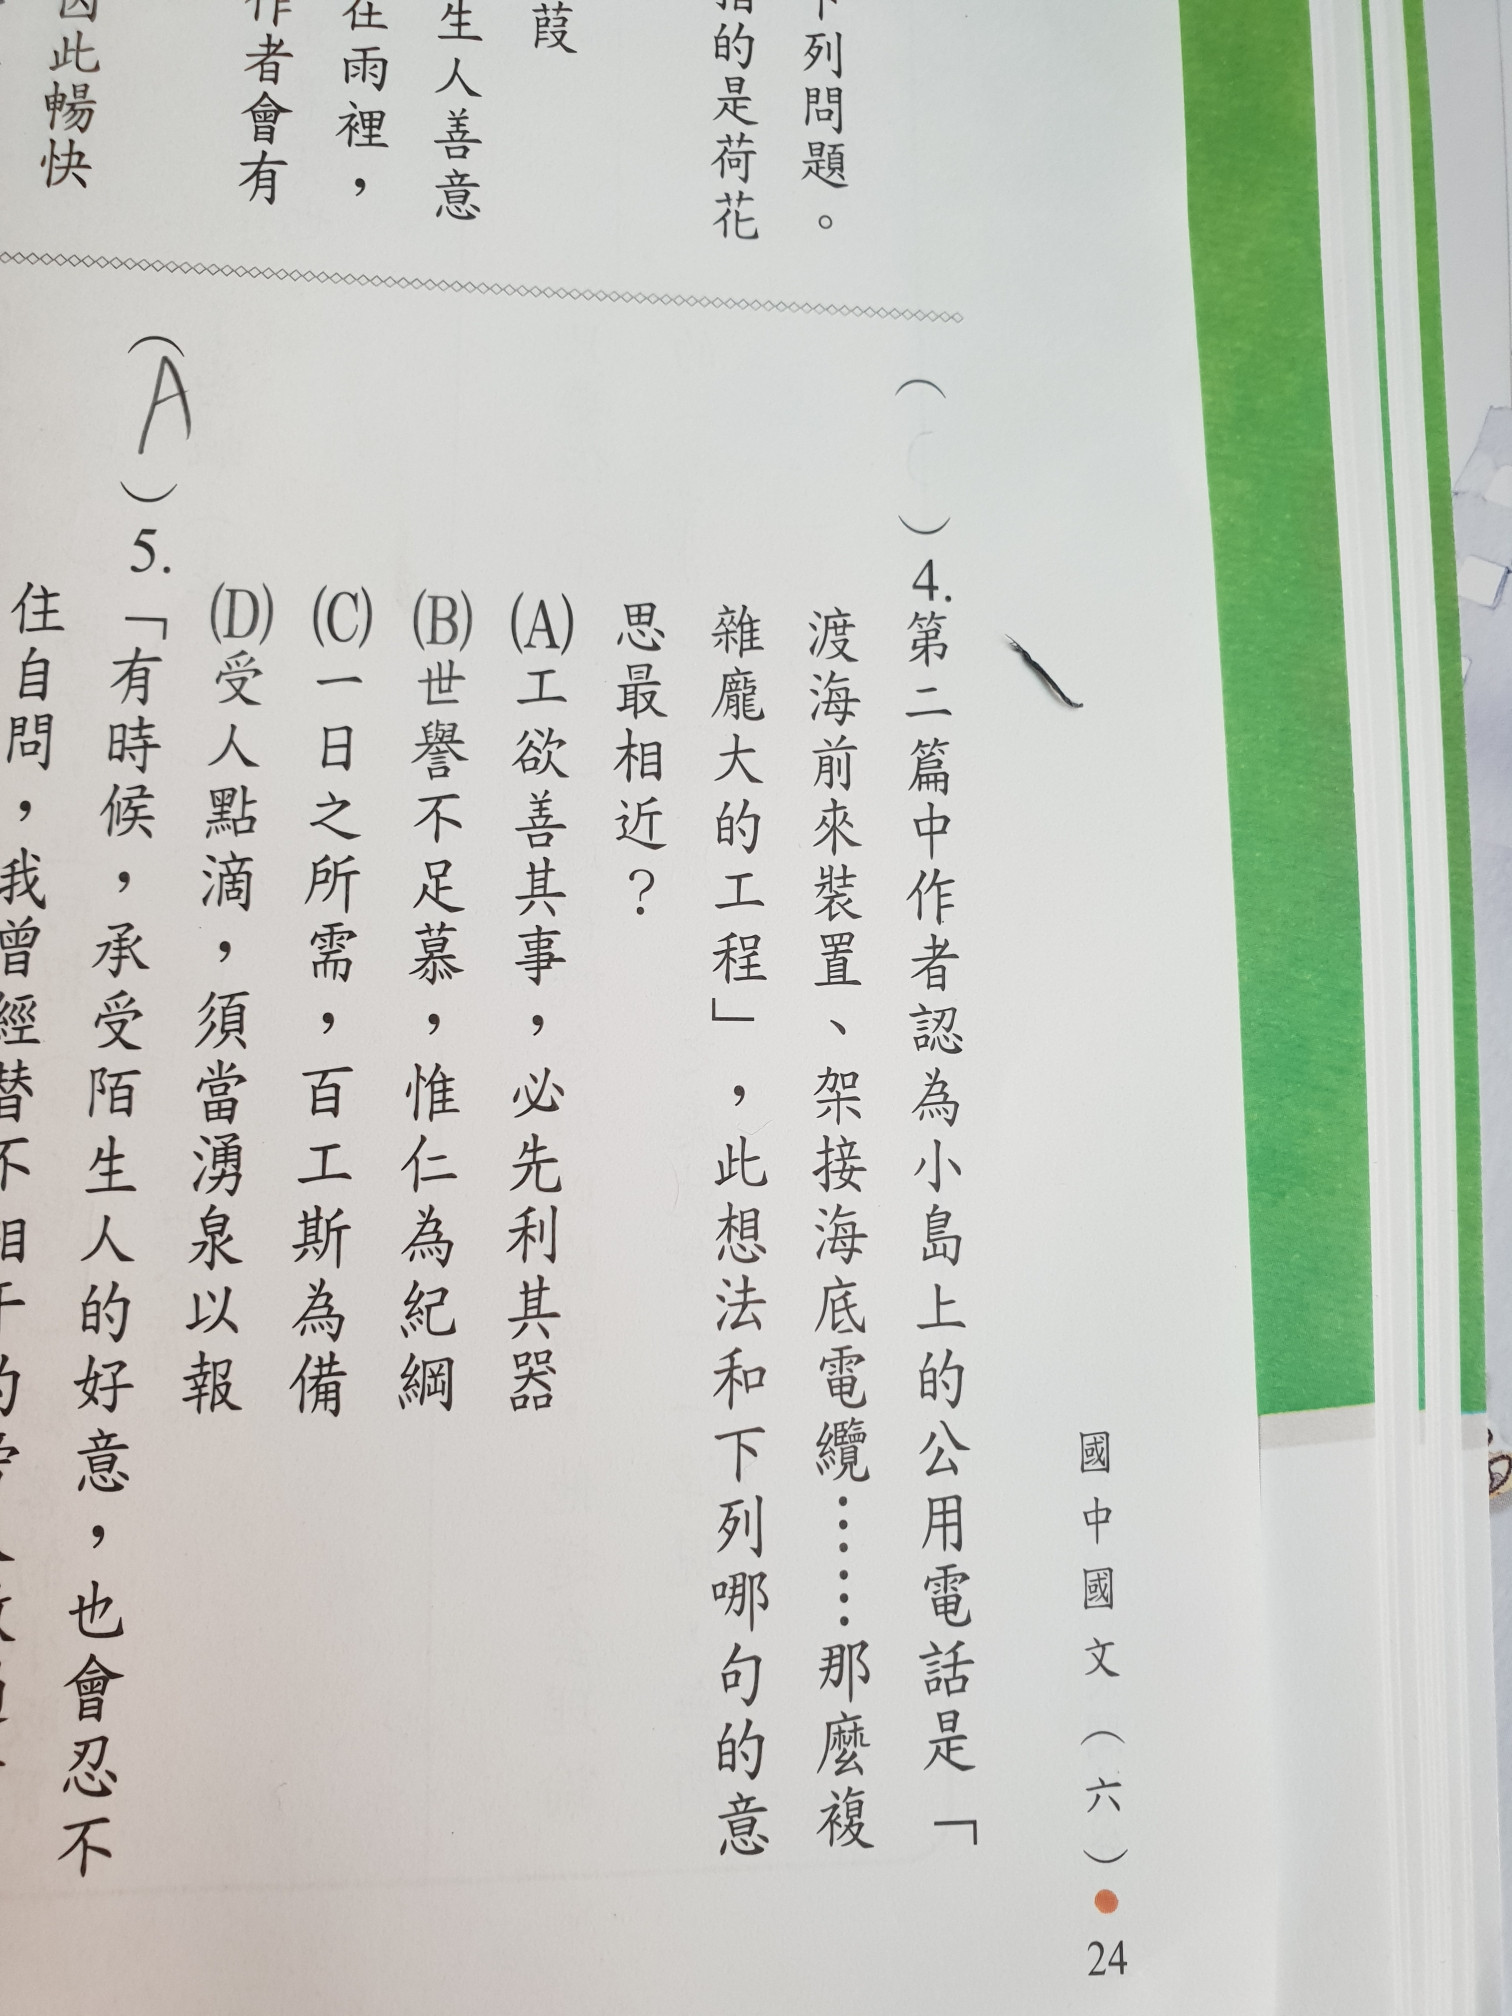 下列問題。
指的是荷花
葭
生人善意
在雨裡，
作者會有
因此暢快
國中國文(六)●24
(　)4.第二篇中作者認為小島上的公用電話是「
渡海前來裝置、架接海底電纜……那麼複
雜龐大的工程」，此想法和下列哪句的意
思最相近？
(A)工欲善其事，必先利其器
(B)世譽不足慕，惟仁為紀綱
(C)一日之所需，百工斯為備
(D)受人點滴，須當湧泉以報
(A)5.「有時候，承受陌生人的好意，也會忍不
住自問，我曾經替不相干的旁人做過